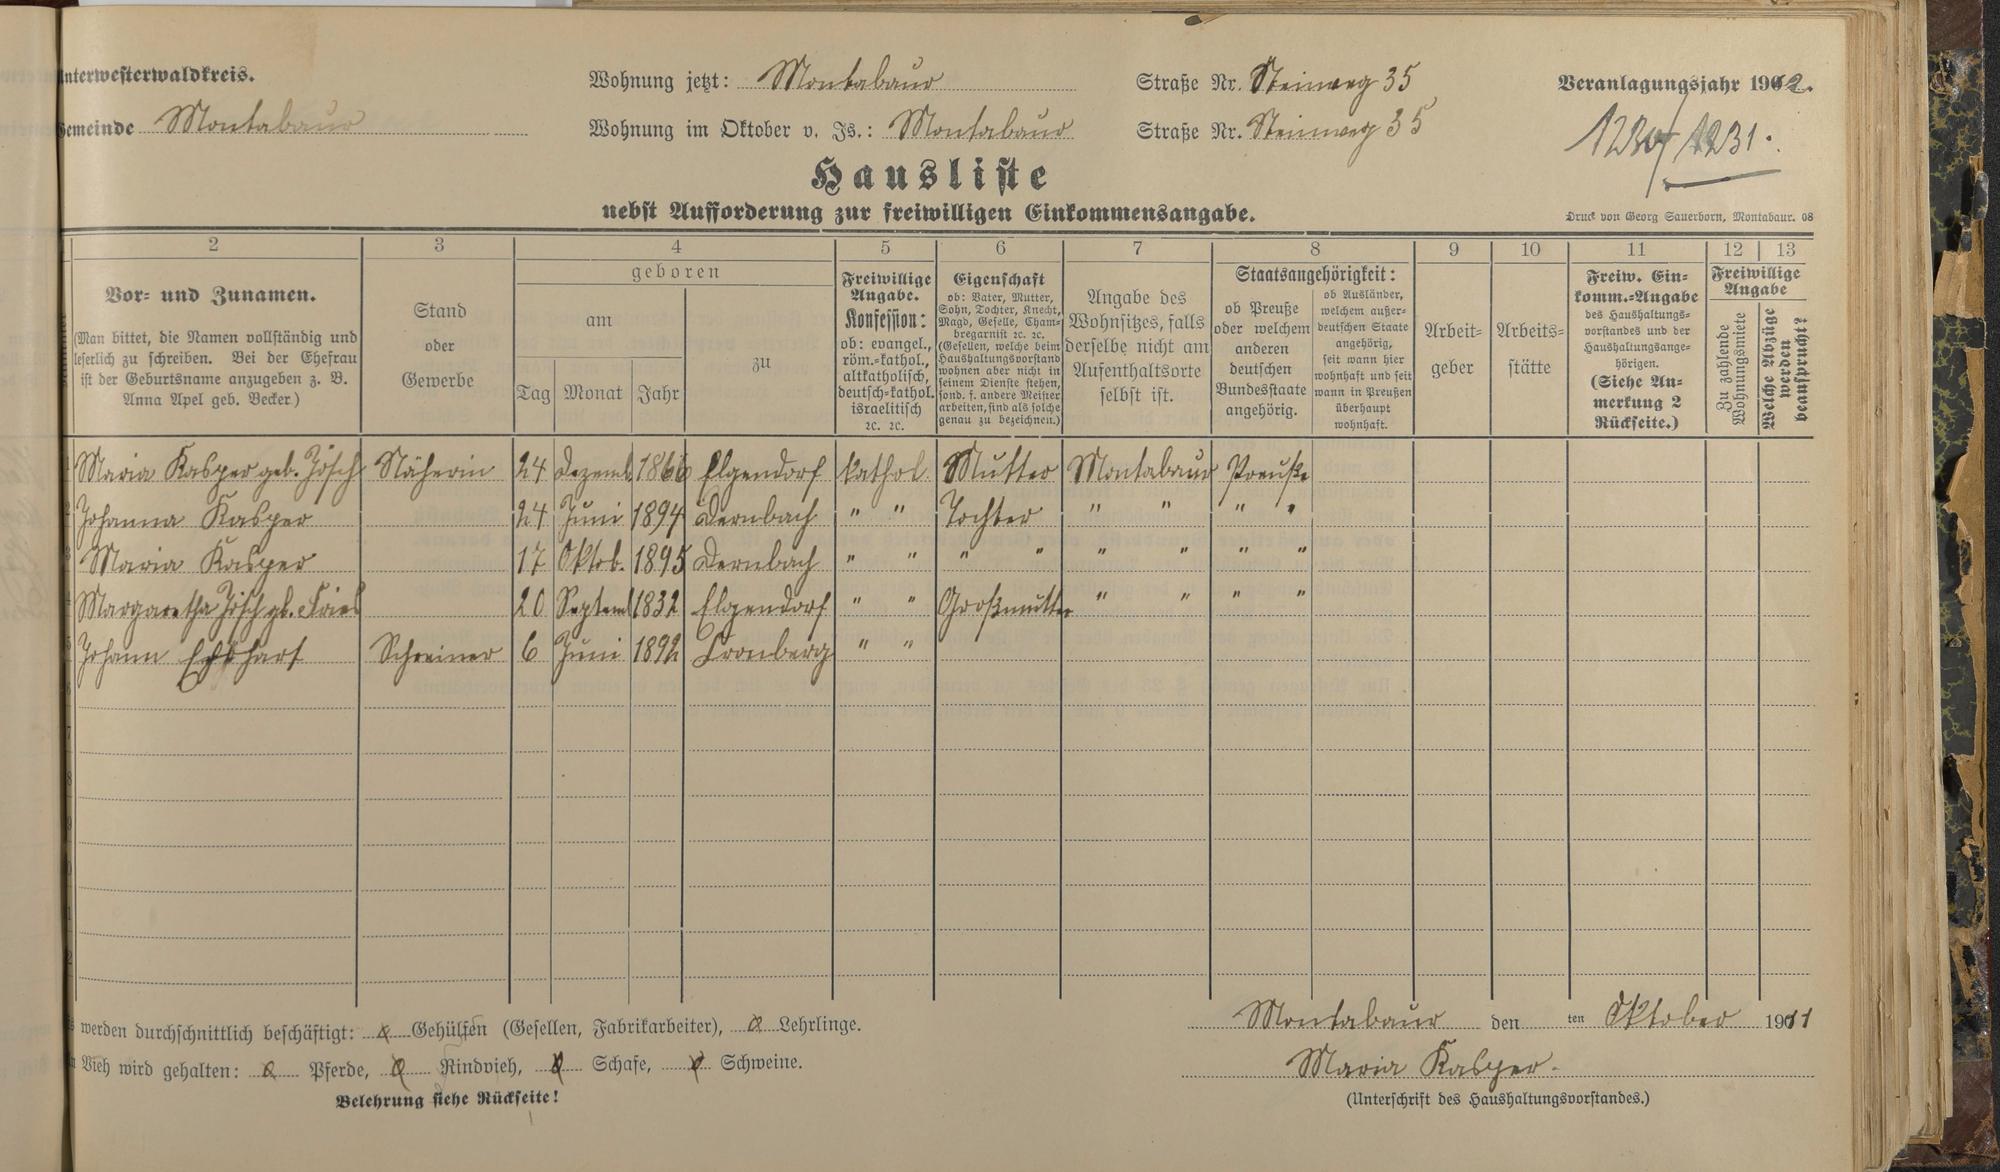 Unterwesterwaldkreis.
Wohnung jetzt: Montabaur Straße Nr. Steinweg 35 Veranlagungsjahr 1912.
Gemeinde Montabaur
Wohnung im Oktober v. Js.: Montabaur Straße Nr. Steinweg 35
1231.
Hausliste
nebst Aufforderung zur freiwilligen Einkommensangabe.
Druck von Georg Sauerborn, Montabaur. 08
2 3 4 5 6 7 8 9 10 11 12 13
Vor- und Zunamen.
(Man bittet, die Namen vollständig und
leserlich zu schreiben. Bei der Ehefrau
ist der Geburtsname anzugeben z. B.
Anna Apel geb. Becker.)
Stand
oder
Gewerbe
geboren
am
Tag Monat Jahr
zu
Freiwillige
Angabe.
Konfession:
ob: evangel.,
röm.-kathol.,
altkatholisch,
deutsch-kathol.
israelitisch
ꝛc. ꝛc.
Eigenschaft
ob: Vater, Mutter,
Sohn, Tochter, Knecht,
Magd, Geselle, Cham-
bregarnist ꝛc. ꝛc.
(Gesellen, welche beim
Haushaltungsvorstand
wohnen aber nicht in
seinem Dienste stehen,
sond. f. andere Meister
arbeiten, sind als solche
genau zu bezeichnen.)
Angabe des
Wohnsitzes, falls
derselbe nicht am
Aufenthaltsorte
selbst ist.
Staatsangehörigkeit:
ob Preuße
oder welchem
anderen
deutschen
Bundesstaate
angehörig.
ob Ausländer,
welchem außer-
deutschen Staate
angehörig,
seit wann hier
wohnhaft und seit
wann in Preußen
überhaupt
wohnhaft.
Arbeit-
geber
Arbeits-
stätte
Freiw. Ein-
komm.-Angabe
des Haushaltungs-
vorstandes und der
Haushaltungsange-
hörigen.
(Siehe An-
merkung 2
Rückseite.)
Freiwillige
Angabe
Zu zahlende
Wohnungsmiete
Welche Abzüge
werden
beansprucht?
1 Maria Kasper geb. Jösch Näherin 24 Dezemb. 1866 Elgendorf kathol. Mutter Montabaur Preuße
2 Johanna Kasper 24 Juni 1894 Dernbach " " Tochter " " " "
3 Maria Kasper 17 Oktob. 1895 Dernbach " " " " " " " "
4 Margaretha Jösch gb. Fries 20 Septemb 1832 Elgendorf " " Großmutter " " " "
5 Johann Schreiner 6 Juni 1892 Cronberg " "
werden durchschnittlich beschäftigt: 0 Gehülfen (Gesellen, Fabrikarbeiter), 0 Lehrlinge.
Montabaur den ten Oktober 1911
Vieh wird gehalten: 0 Pferde, 0 Rindvieh, 0 Schafe, 0 Schweine.
Maria Kasper.
Belehrung siehe Rückseite!
(Unterschrift des Haushaltungsvorstandes.)